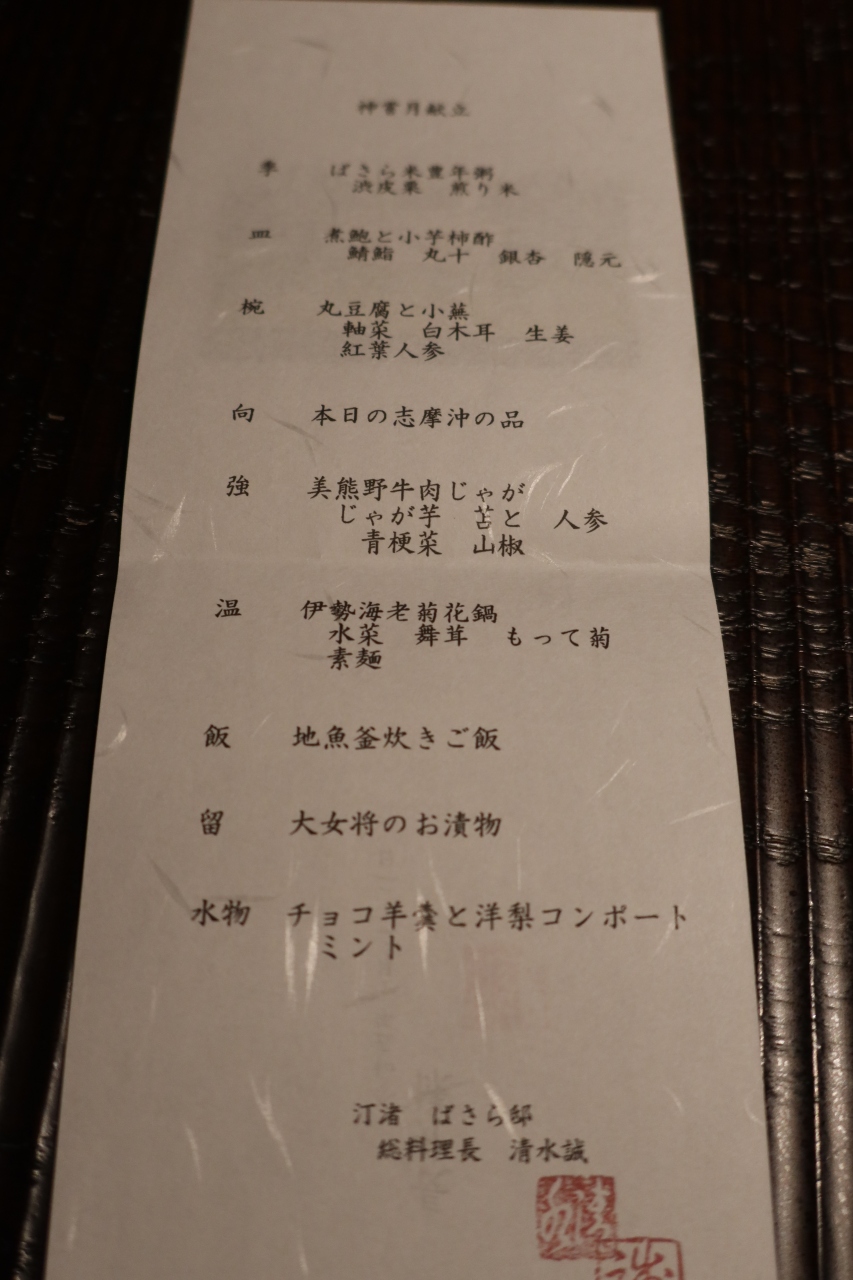 神嘗月献立
季　ばさら米豊年粥
渋皮栗　煎り米
皿　煮鮑と小芋柿酢
鯖鮨　丸十　銀杏　隠元
椀　丸豆腐と小蕪
軸菜　白木耳　生姜
紅葉人参
向　本日の志摩沖の品
強　美熊野牛肉じゃが
じゃが芋　苫と　人参
青梗菜　山椒
温　伊勢海老菊花鍋
水菜　舞茸　もって菊
素麺
飯　地魚釜炊きご飯
留　大女将のお漬物
水物　チョコ羊羹と洋梨コンポート
ミント
汀渚　ばさら邸
総料理長　清水誠